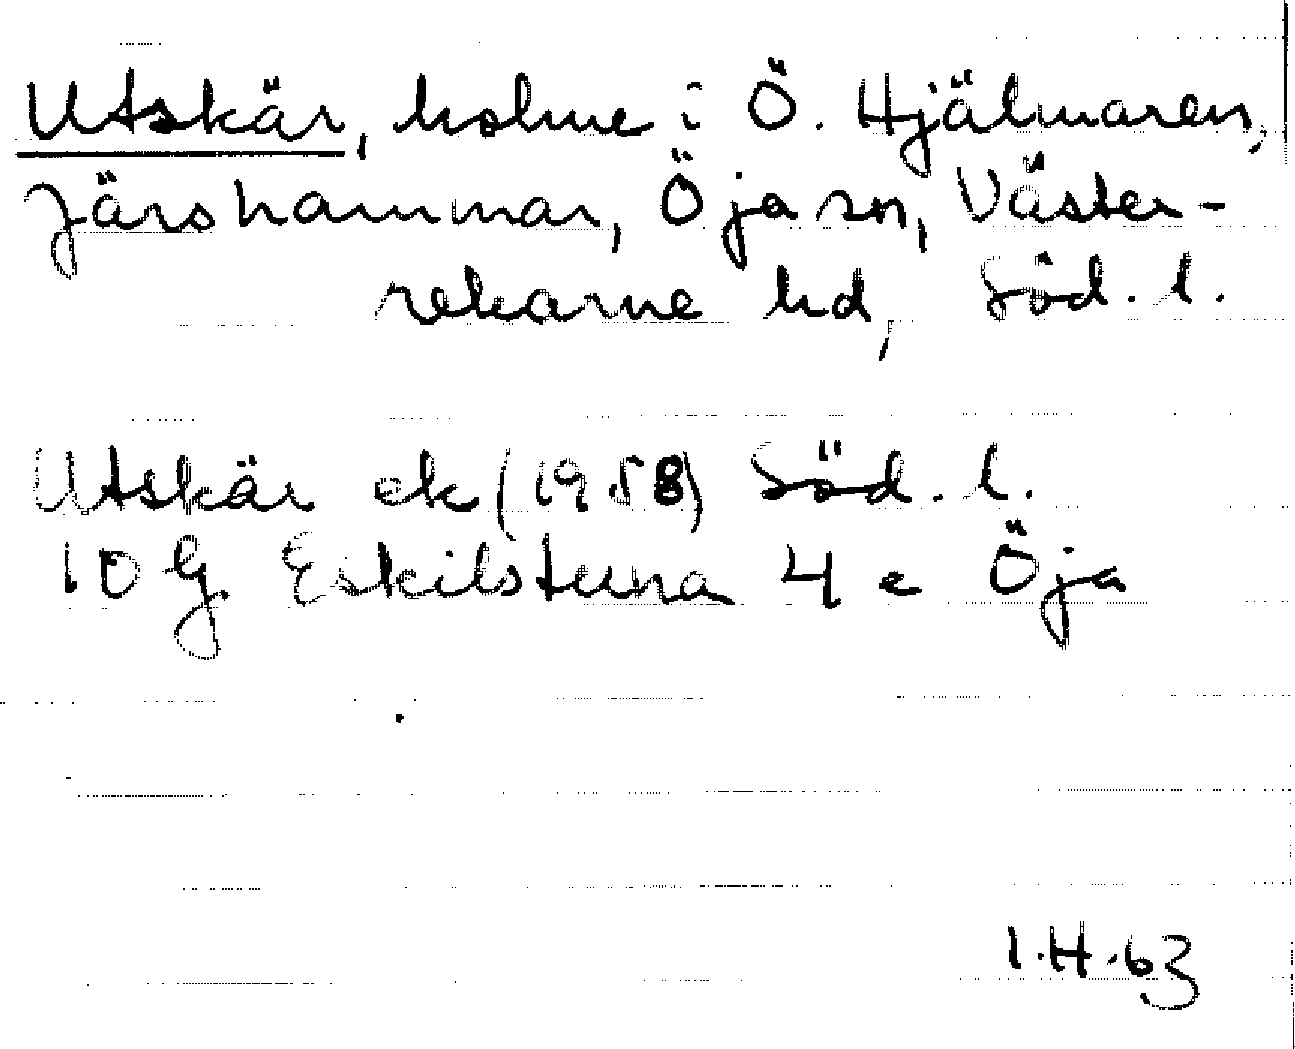 Utskär, holme i Ö. Hjälmaren,
Järshammar, Öja sn, Väster-
rekarne hd, Söd. l.
Utskär ek (1958) Söd. l.
10 G Eskilstuna 4 e Öja
I.H. 63